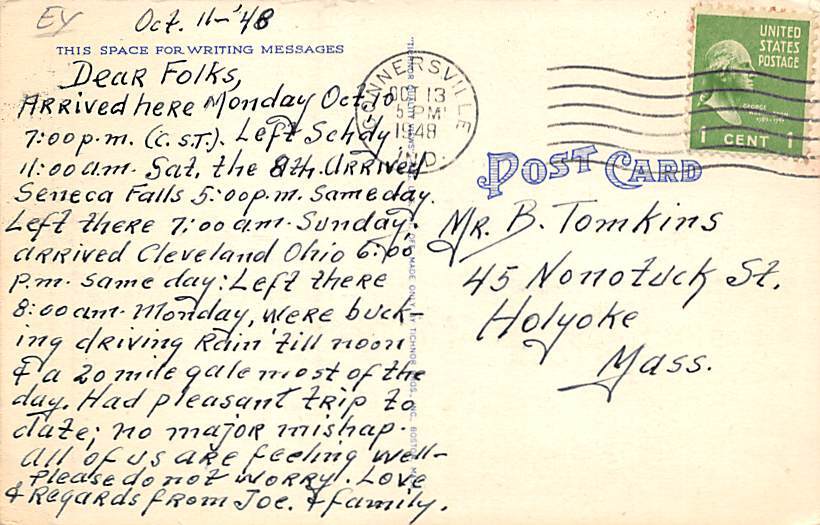 EY
Oct. 11-'48
THIS SPACE FOR WRITING MESSAGES
Dear Folks,
Arrived here Monday Oct. 10
7:00 p.m. (C.S.T.). Left Schdy
11:00 a.m. Sat. the 8th. Arrived
Seneca Falls 5:00 p.m. Same day.
Left there 7:00 am. Sunday:
arrived Cleveland Ohio 6:00
p.m. same day: Left there
8:00 am. Monday, were buck-
ing driving Rain 'till noon
& a 20 mile gale most of the
day. Had pleasant trip to
date; no major mishap.
All of us are feeling well-
please do not worry. Love
& Regards from Joe. & family.
CONNERSVILLE
OCT 13
5 PM
1948
IND.
UNITED
STATES
POSTAGE
GEORGE
WASHINGTON
1 CENT 1
POST CARD
Mr. B. Tomkins
45 Nonotuck St.
Holyoke
Mass.